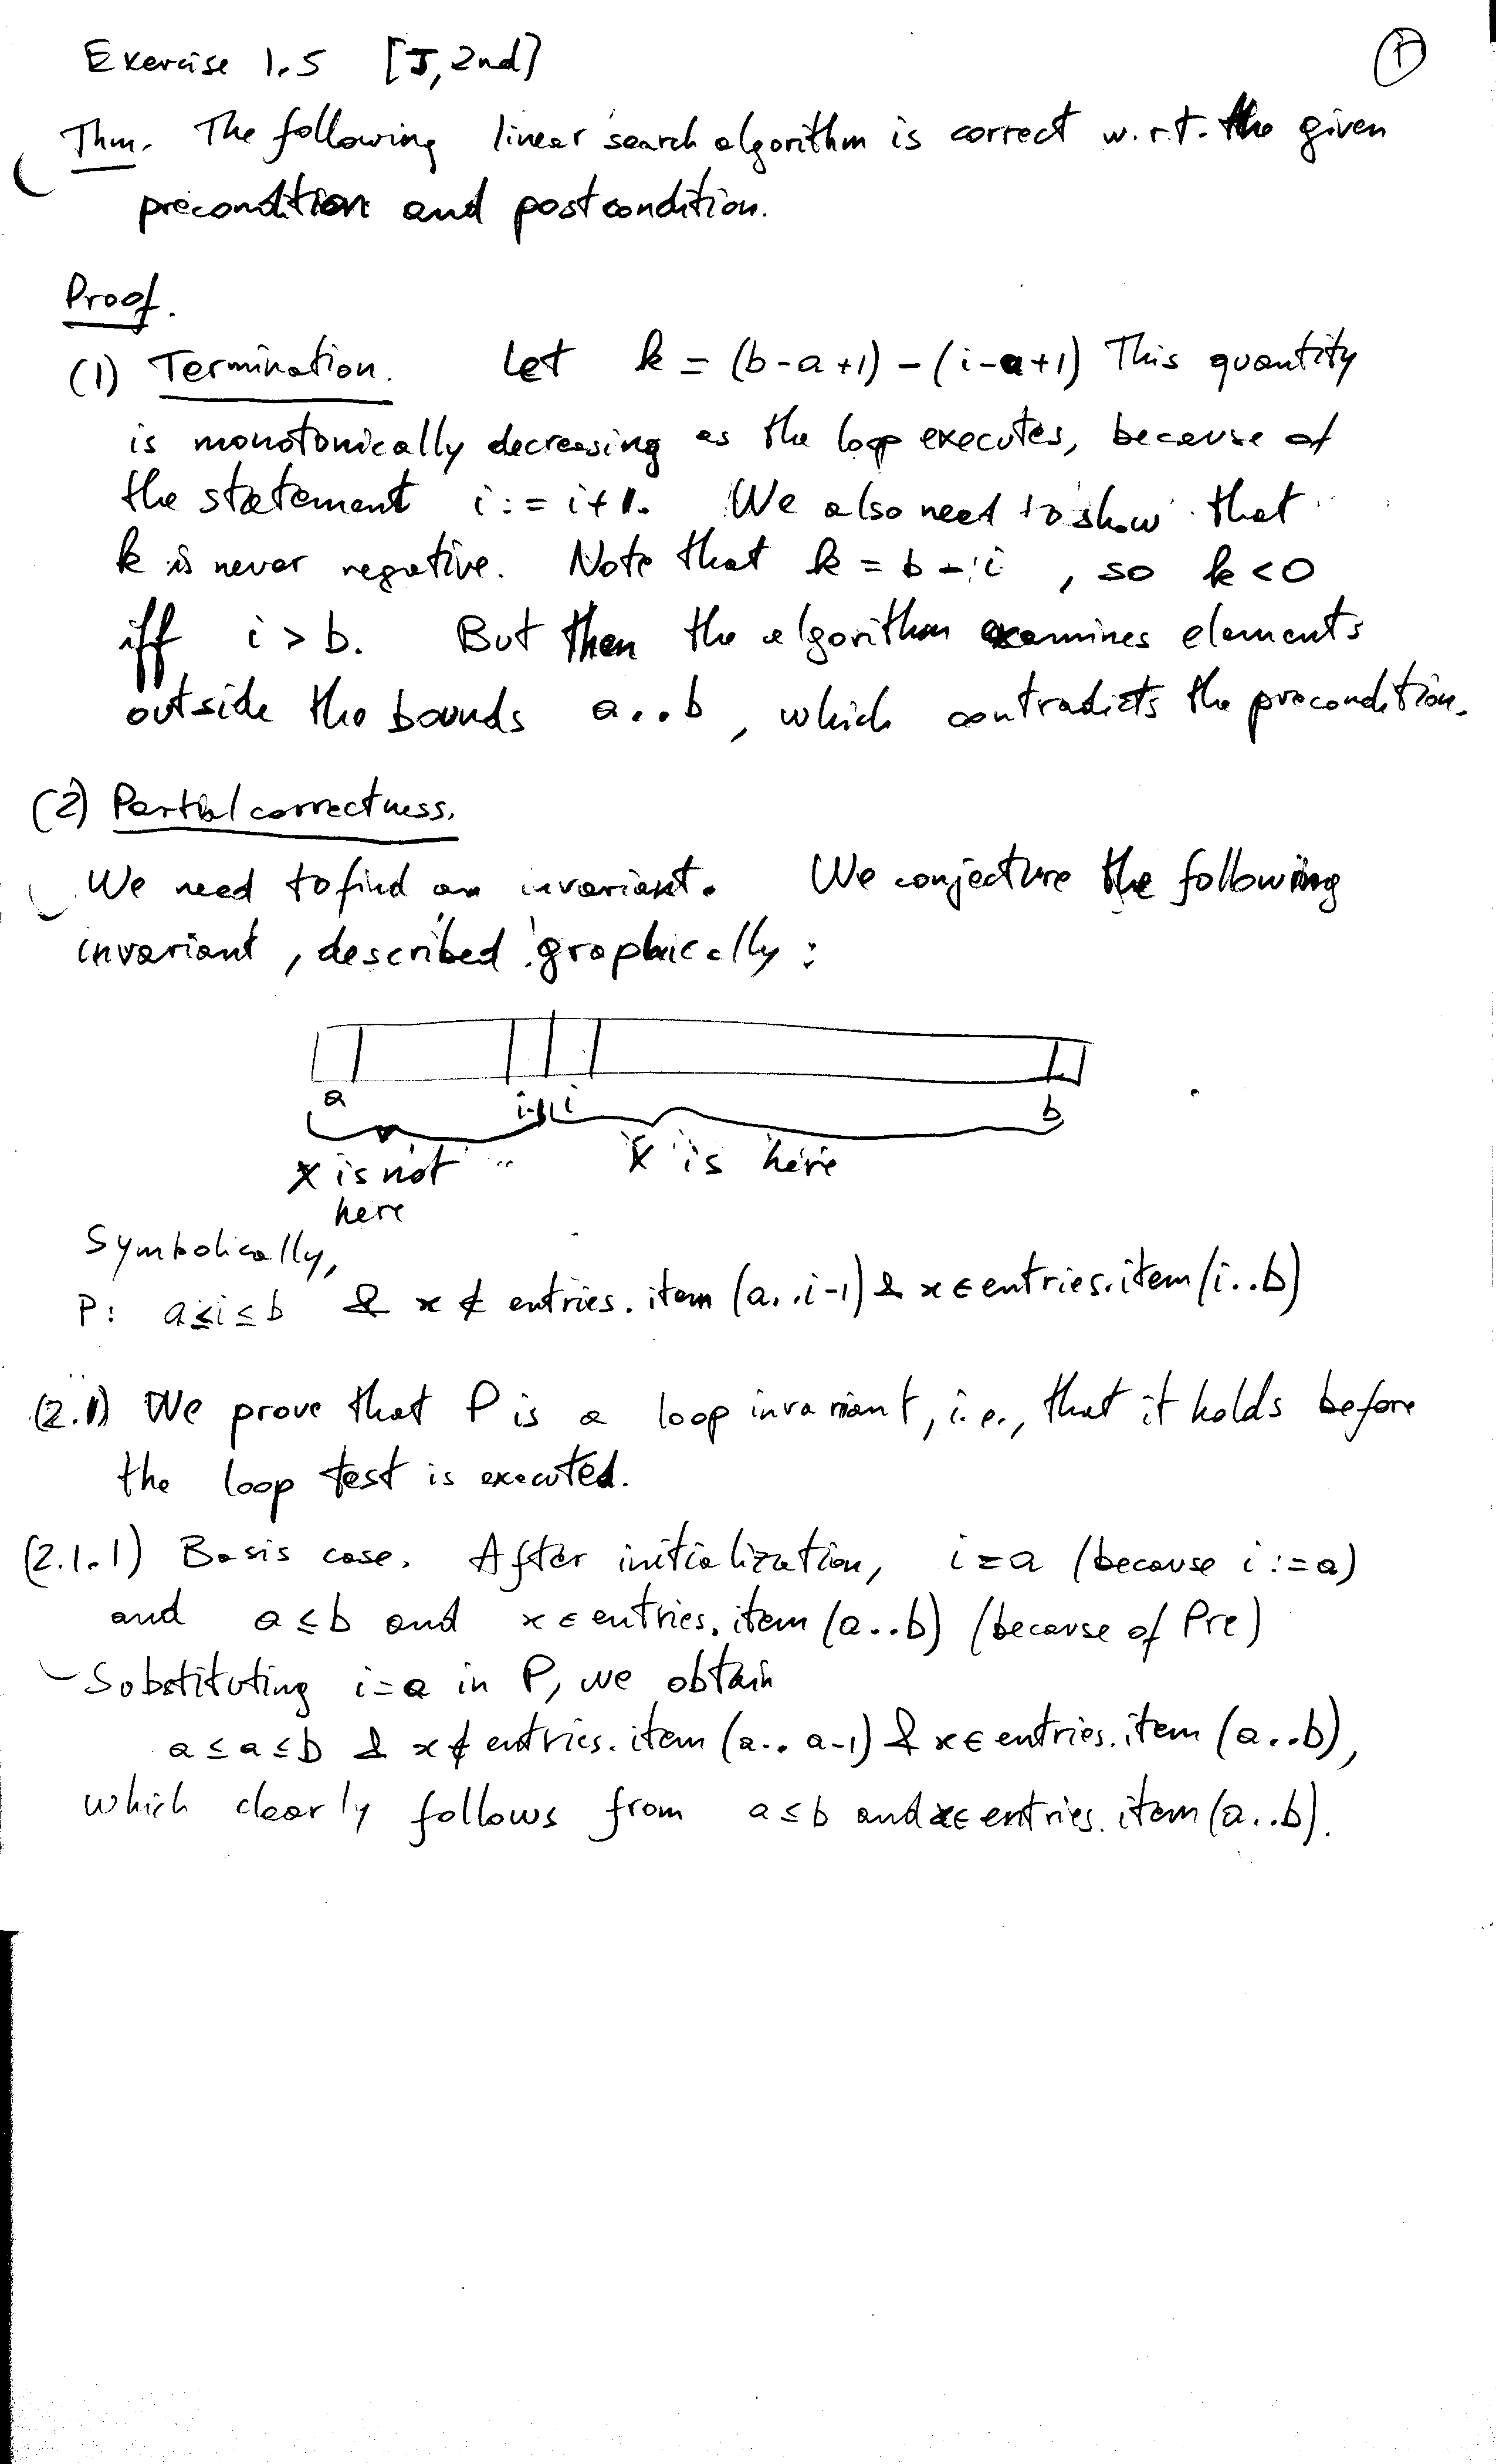 Exercise 1.5 [J, 2nd] 1
Thm. The following linear search algorithm is correct w.r.t. the given
precondition and postcondition.
Proof.
(1) Termination. Let k = (b-a+1) - (i-a+1) This quantity
is monotonically decreasing as the loop executes, because of
the statement i := i+1. We also need to show that
k is never negative. Note that k = b - i , so k < 0
iff i > b. But then the algorithm examines elements
outside the bounds a..b , which contradicts the precondition.
(2) Partial correctness.
We need to find an invariant. We conjecture the following
invariant, described graphically :
a i-1 i b
x is not x is here
here
Symbolically,
P: a ≤ i ≤ b & x ∉ entries.item (a..i-1) & x ∈ entries.item (i..b)
(2.1) We prove that P is a loop invariant, i.e., that it holds before
the loop test is executed.
(2.1.1) Basis case. After initialization, i = a (because i := a)
and a ≤ b and x ∈ entries.item (a..b) (because of Pre)
Substituting i = a in P, we obtain
a ≤ a ≤ b & x ∉ entries.item (a..a-1) & x ∈ entries.item (a..b),
which clearly follows from a ≤ b and x ∈ entries.item (a..b).